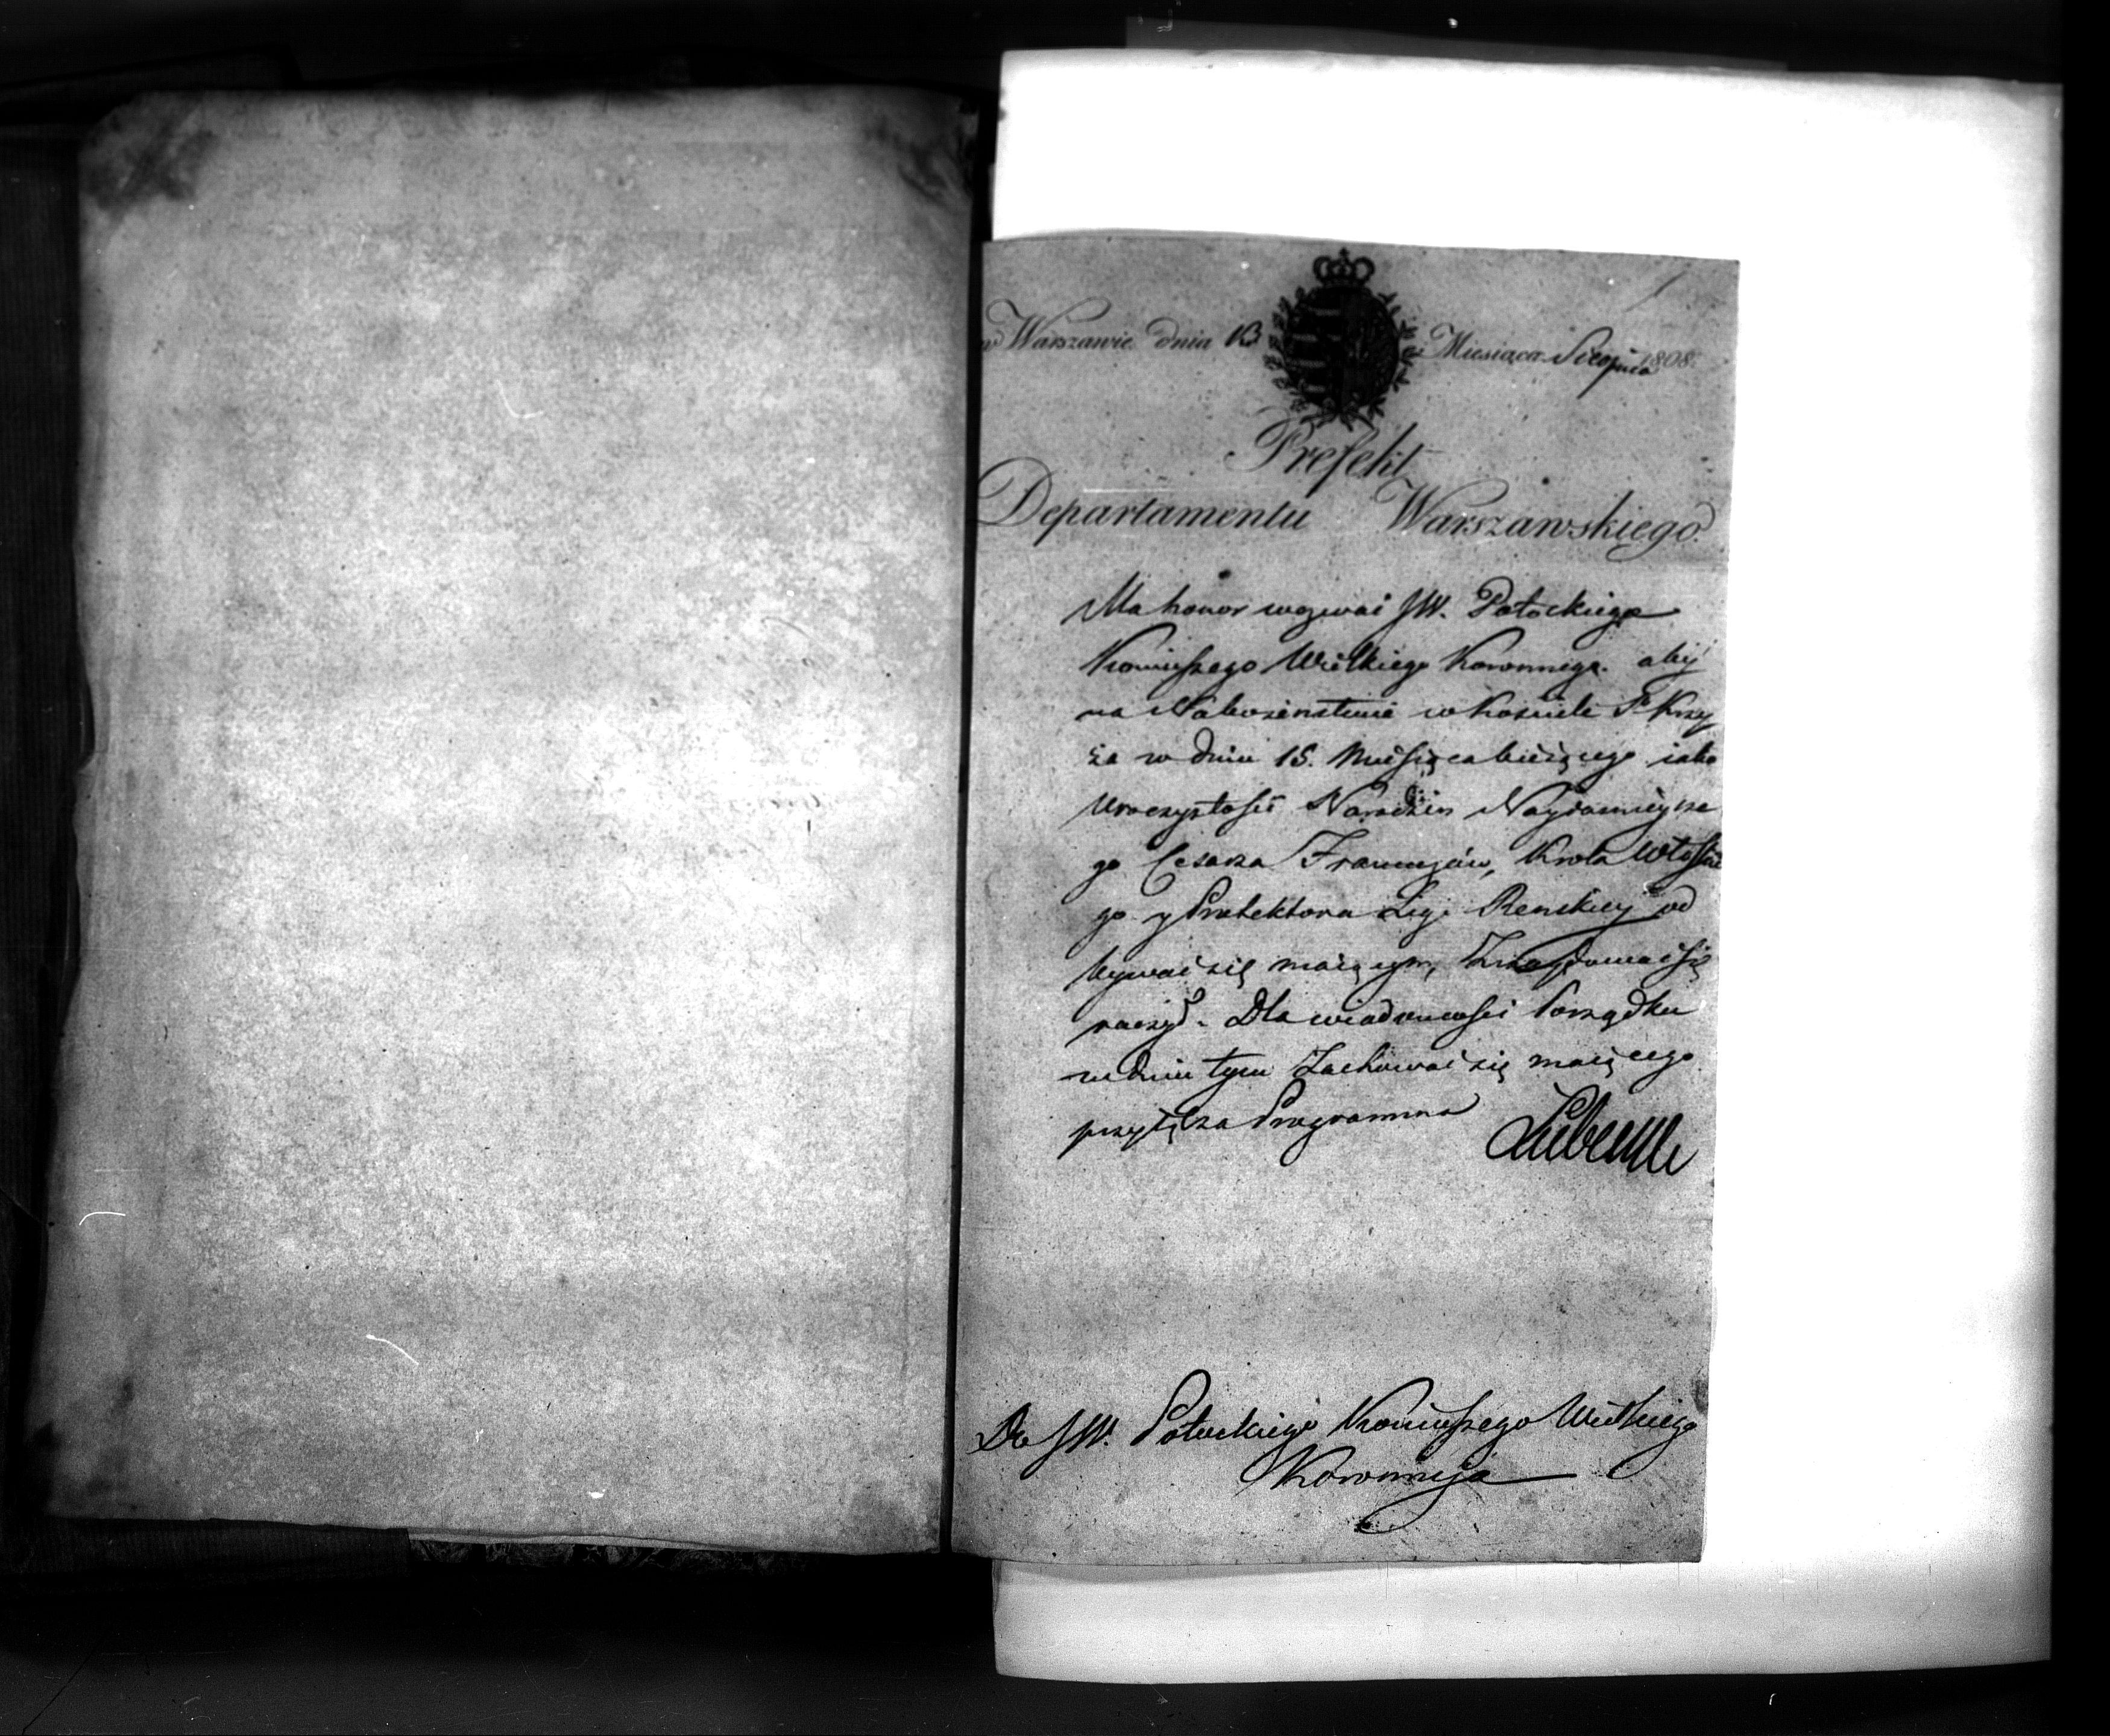 1
w Warszawie dnia 13 Miesiąca Sierpnia 1808.
Prefekt
Departamentu Warszawskiego.
Ma honor wezwać JW. Potockiego
Koniuszego Wielkiego Koronnego. aby
na Nabożeństwie w Kościele S. Krzy
ża w dniu 15. Miesiąca bieżącego iako
Uroczystości Narodzin Nayiaśnieysze
go Cesarza Francuzów, Krola Włoskie
go y Protektora Ligi Renskiey od
bywać się maiącym, Znaydować się
raczył. Dla wiadomości Porządku
w dniu tym Zachować się maiącego
przyłącza Programma
Do JW. Potockiego Koniuszego Wielkiego
Koronnego